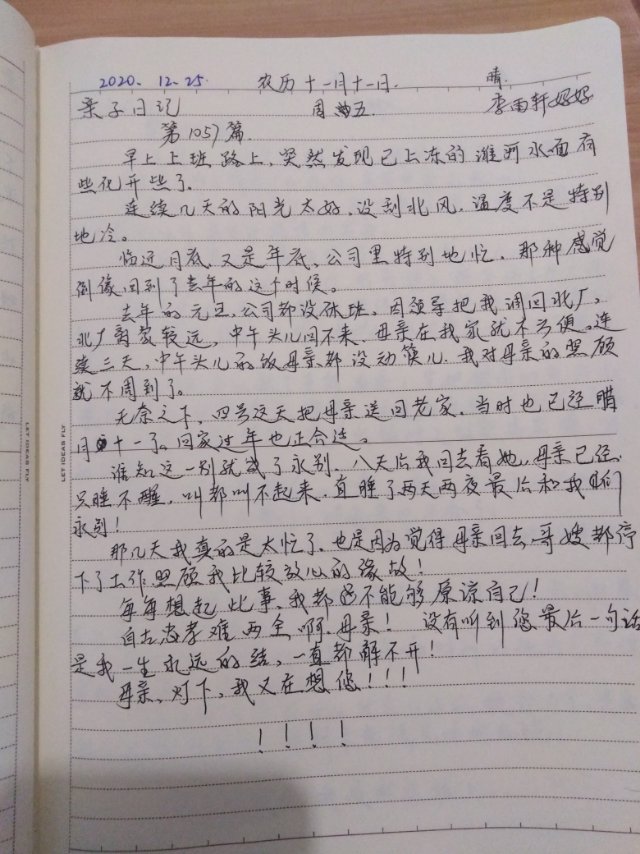 2020. 12. 25. 农历十一月十一日. 晴.
亲子日记 周五 李雨轩妈妈
第1057篇.
早上上班路上，突然发现已上冻的潍河水面有
些化开些了.
连续几天的阳光太好，没刮北风，温度不是特别
地冷。
临近月底，又是年底，公司里特别地忙，那种感觉
倒像回到了去年的这个时候。
去年的元旦，公司都没休班，因领导把我调回北厂，
北厂离家较远，中午头儿回不来，母亲在我家就不方便。连
续三天，中午头儿的饭母亲都没动筷儿，我对母亲的照顾
就不周到了。
无奈之下，四号这天把母亲送回老家，当时也已经腊
月十一了，回家过年也正合适。
谁知这一别就成了永别，八天后我回去看她，母亲已经
只睡不醒，叫都叫不起来，直睡了两天两夜最后和我们
永别！
那几天我真的是太忙了，也是因为觉得母亲回去，哥嫂都停
下了工作照顾我比较放心的缘故！
每每想起此事，我都还不能够原谅自己！
自古忠孝难两全啊，母亲！没有听到您最后一句话
是我一生永远的结，一直都解不开！
母亲，灯下，我又在想您！！！
！！！！
LET IDEAS FLY
LET IDEAS FLY